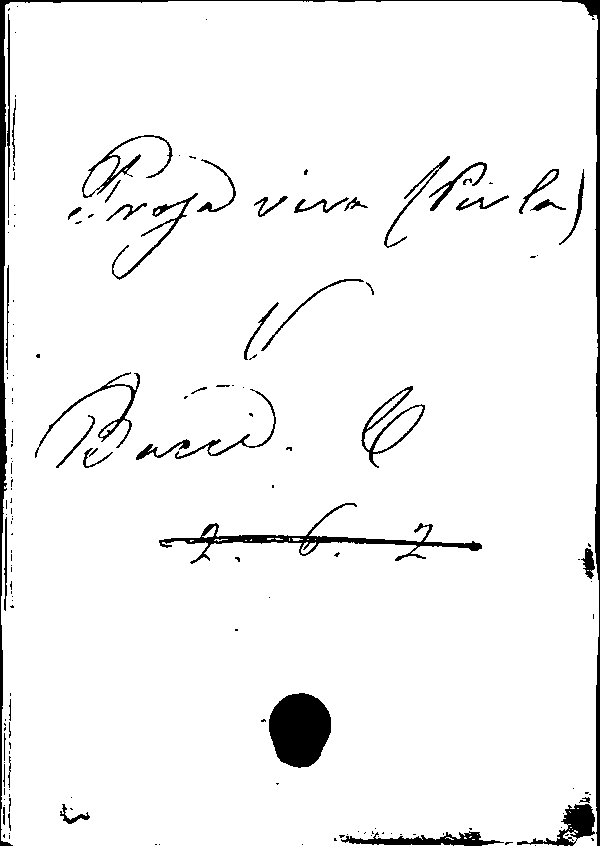 Prosa viva (Pirla)
V
Bacci. C
2. 6. 2